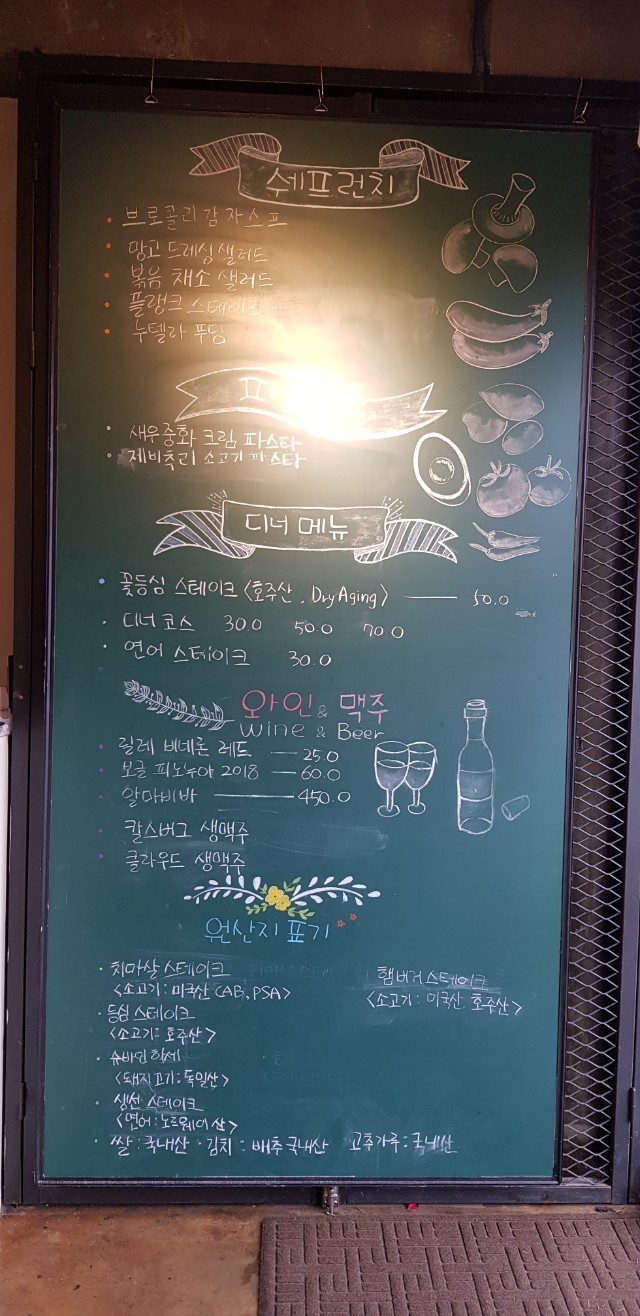 쉐프런치
브로콜리감자스프
망고 드레싱 샐러드
볶음 채소 샐러드
플랭크 스테이크
누텔라 푸딩
파
새우 중화 크림 파스타
제비추리 소고기 파스타
디너 메뉴
꽃등심 스테이크 <호주산, Dry Aging> 50.0
디너 코스 30.0 50.0 70.0
연어 스테이크 30.0
와인 & 맥주
Wine & Beer
릴레 비네론 레드 25.0
보글 피노누아 2018 60.0
알마비바 450.0
칼스버그 생맥주
클라우드 생맥주
원산지 표기
치마살 스테이크
<소고기: 미국산 CAB, PSA>
햄버거스테이크
<소고기: 미국산. 호주산>
등심 스테이크
<소고기: 호주산>
슈바인학세
<돼지고기: 독일산>
생선 스테이크
<연어: 노르웨이산>
쌀: 국내산 · 김치: 배추 국내산 고추가루: 국내산